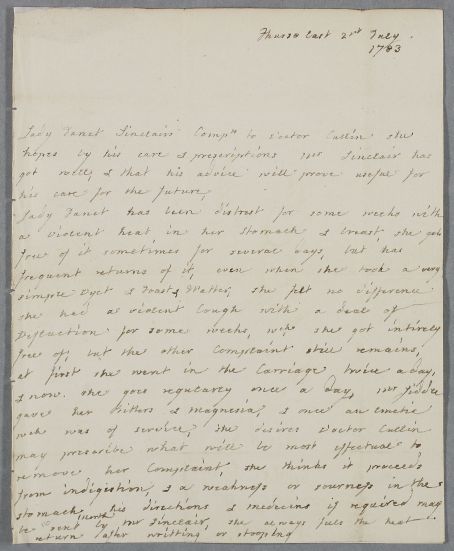 Thurso Cast 2nd July
1783
Lady Janet Sinclairs Compts to Doctor Cullin she
hopes by his care & prescriptions Mr Sinclair has
got well, & that his advice will prove useful for
his care for the future,
Lady Janet has been distrest for some weeks with
a violent heat in her stomach & breast she gets
free of it sometimes for several days, but has
frequent returns of it, even when she took a very
simple Dyet & Toast & Watter, she felt no difference
she had a violent Cough with a deal of
Defluction for some weeks, wch she got intirely
free of, but the other Complaint still remains,
at first she went in the Carriage twice a day,
& now she goes regularly once a Day, Mr
gave her bitters & Magnesia, & once an emetic
wch was of service, she desires Doctor Cullin
may prescribe what will be most effectual to
remove her Complaint, she thinks it proceeds
from indigestion, & a weakness or sourness in the
stomach, his directions & medecins if required may
be sent by Mr Sinclair, she always feels the heat
return after writting or stooping